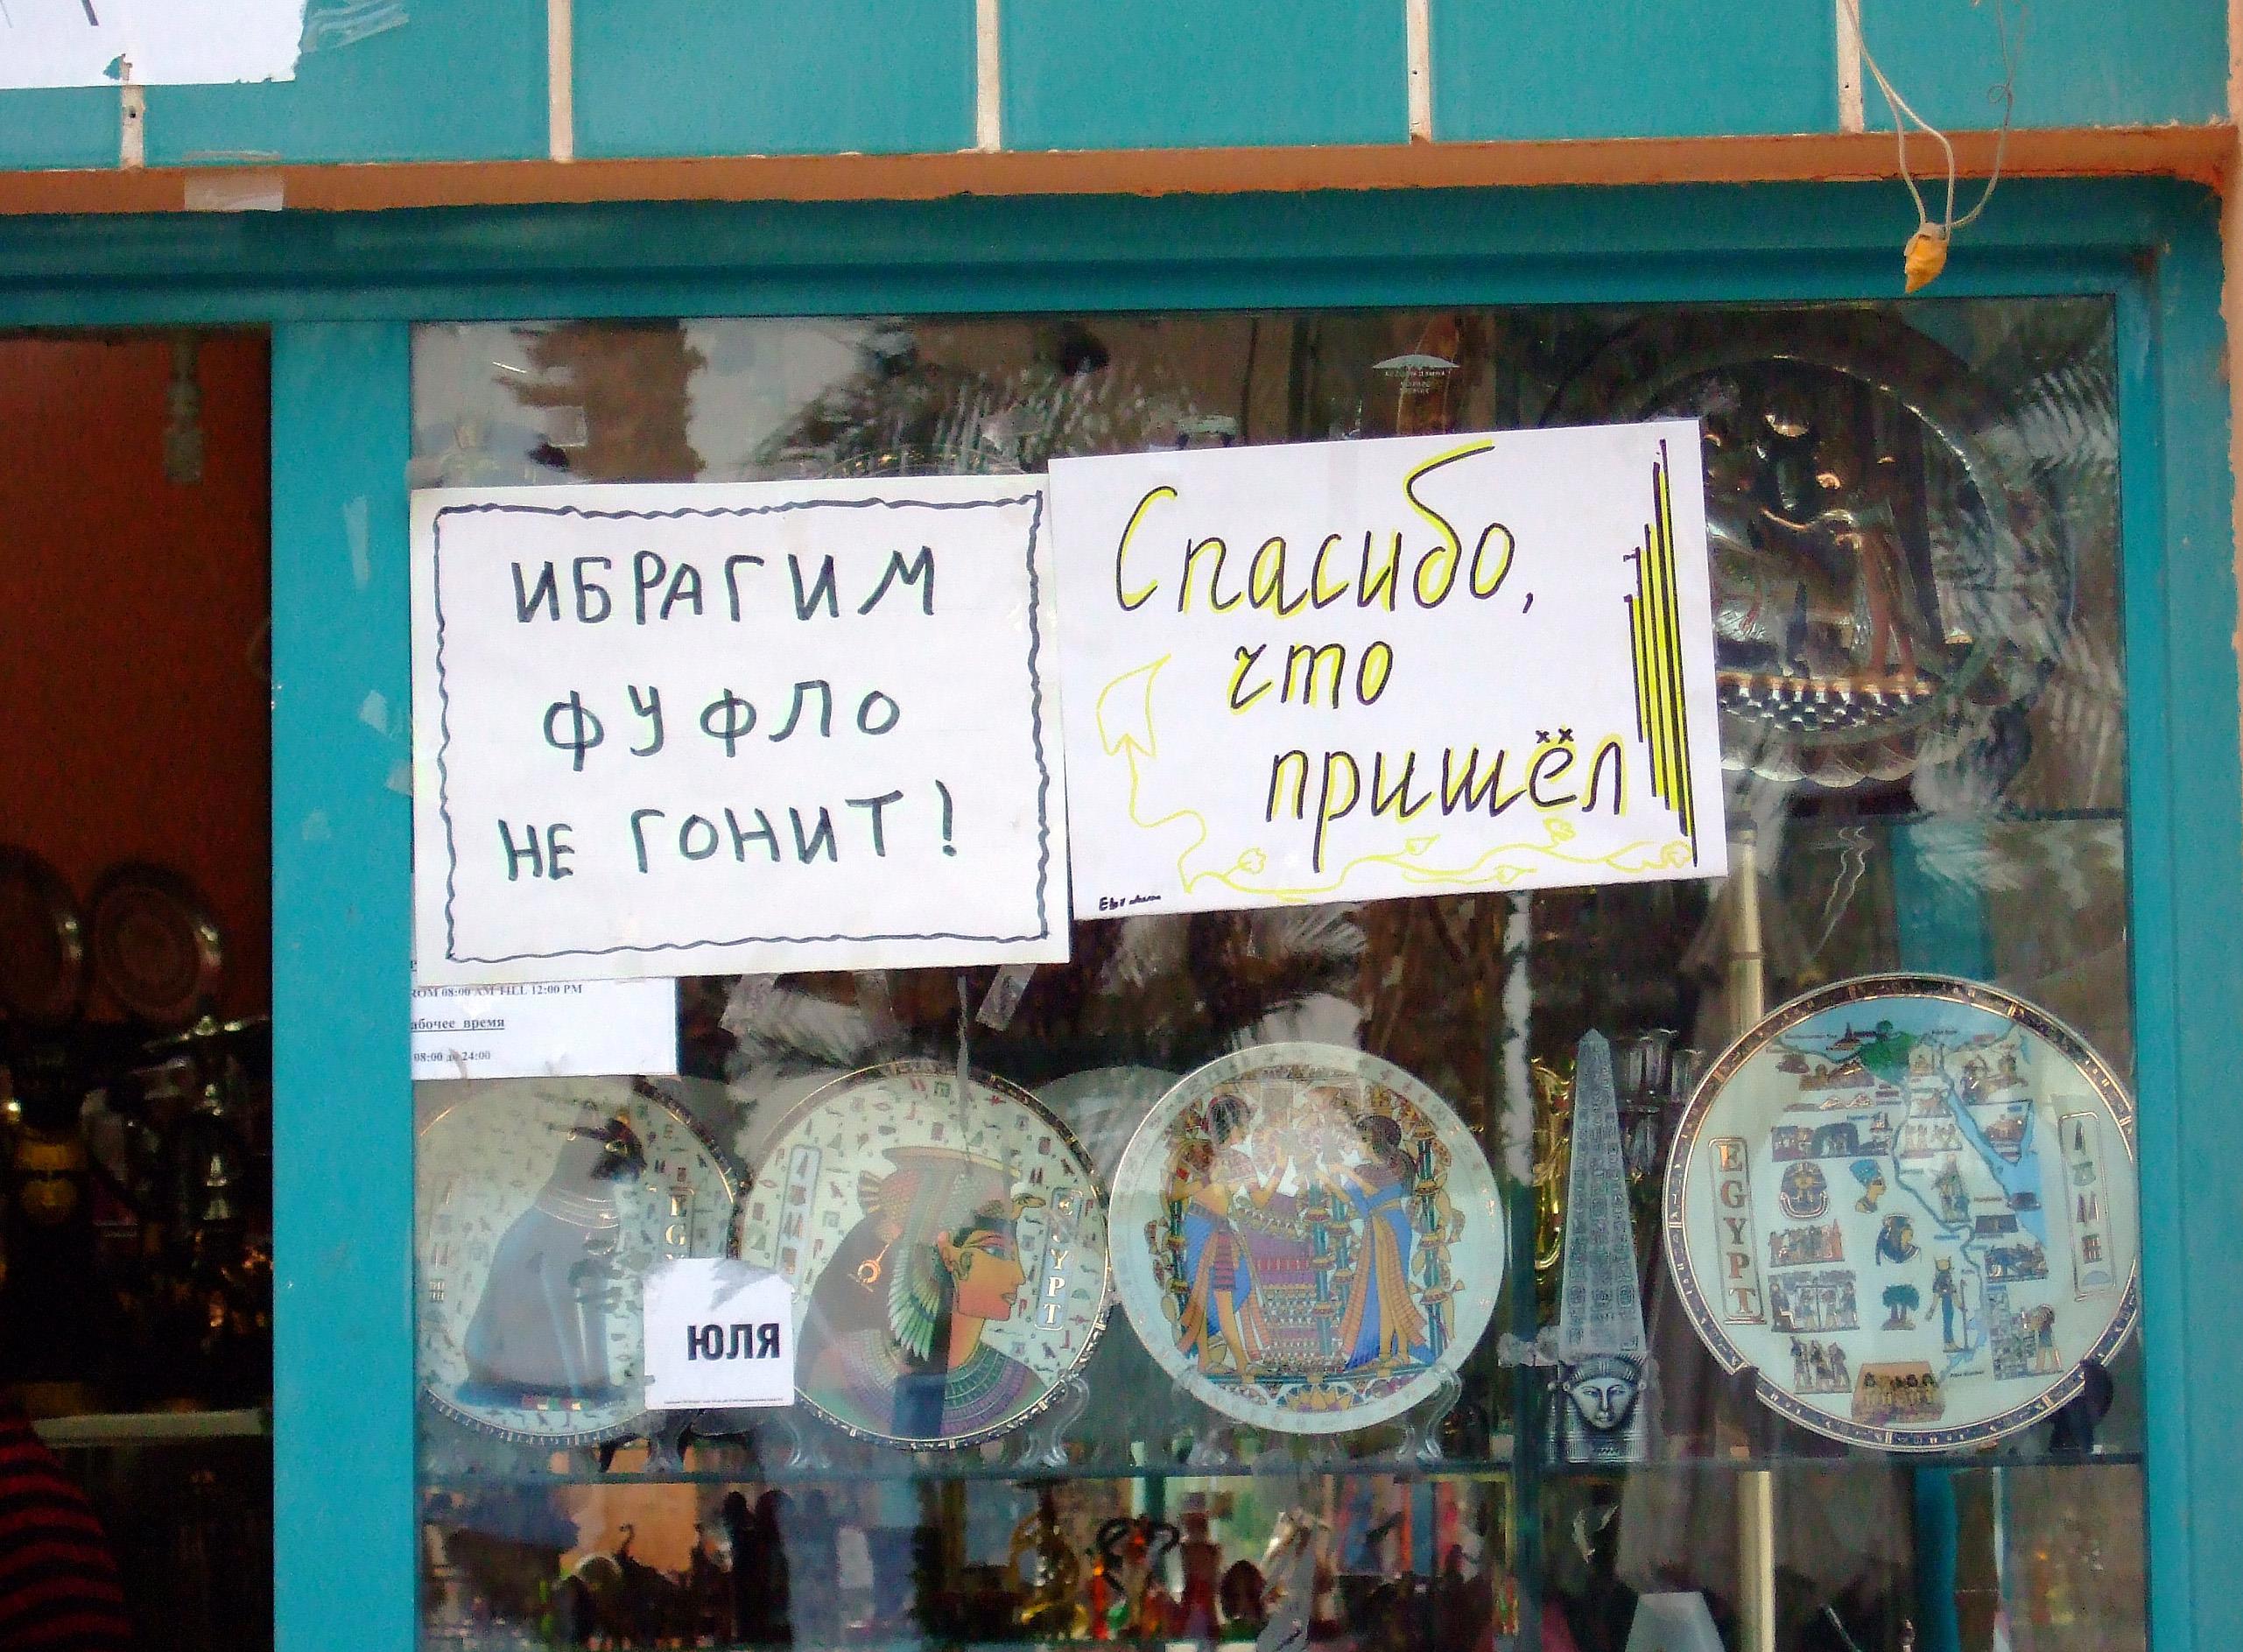 ИБРАГИМ
ФУФЛО
НЕ ГОНИТ!
Спасибо,
что
пришёл
08:00 AM TILL 12:00 PM
время
08:00 до 24:00
ЮЛЯ
EGYPT
EGYPT
EGYPT